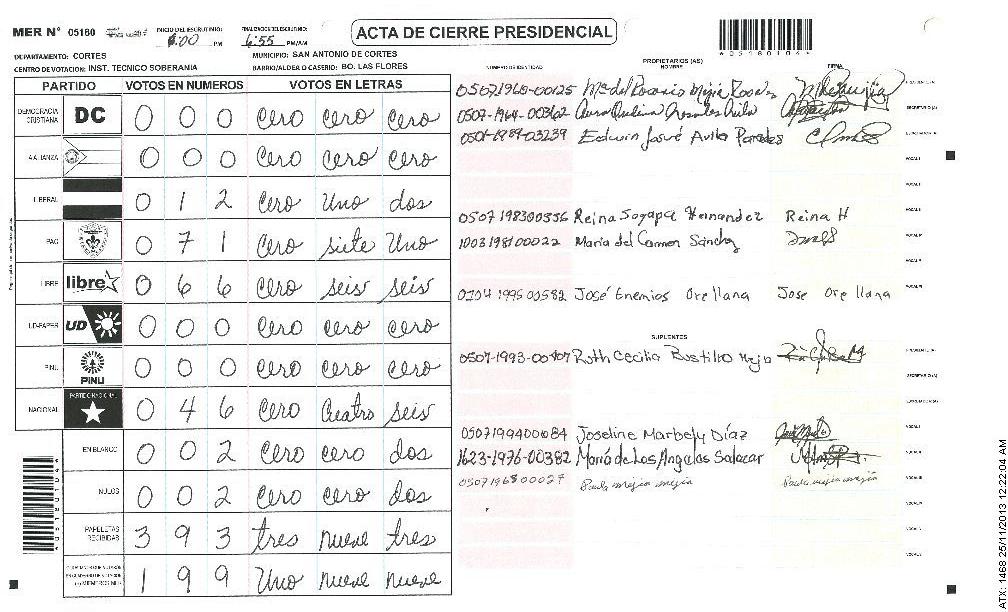 MER N° 05160 INICIO DEL ESCRUTINIO: 6:00 PM FINALIZACION DEL ESCRUTINIO: 6:55 PM/AM
ACTA DE CIERRE PRESIDENCIAL
*05160104*
DEPARTAMENTO: CORTES MUNICIPIO: SAN ANTONIO DE CORTES
CENTRO DE VOTACION: INST. TECNICO SOBERANIA BARRIO/ALDEA O CASERIO: BO. LAS FLORES
PARTIDO VOTOS EN NUMEROS VOTOS EN LETRAS
DEMOCRACIA CRISTIANA DC 0 0 0 Cero cero cero
ALIANZA 0 0 0 Cero cero cero
LIBERAL 0 1 2 Cero Uno dos
PAC 0 7 1 Cero siete Uno
LIBRE libre 0 6 6 Cero seis seis
UD-FAPER UD 0 0 0 Cero cero cero
PINU PINU 0 0 0 Cero cero cero
NACIONAL PARTIDO NACIONAL 0 4 6 Cero Cuatro seis
EN BLANCO 0 0 2 Cero cero dos
NULOS 0 0 2 Cero cero dos
PAPELETAS RECIBIDAS 3 9 3 tres nueve tres
1 9 9 Uno nueve nueve
NUMERO DE IDENTIDAD PROPIETARIOS (AS) NOMBRE FIRMA
0507-1960-00125 Ma del Rosario Mejia
0507-1964-00362
0501-1989-03239 Edwin Josué Avila Paredes
0507 198300556 Reina Sagapa Hernandez Reina H
1003198100022 Maria del Carmen Sánchez
0104 1995 00582 José Enemios Orellana Jose Orellana
SUPLENTES
0507-1993-00407 Ruth Cecilia Bustillo Mejia
0507199400084 Joseline Marbely Díaz
1623-1976-00382 María de Los Angeles Salazar
0507196800027 Paula mejia mejia Paula mejia mejia
ATX: 1468 25/11/2013 12:22:04 AM